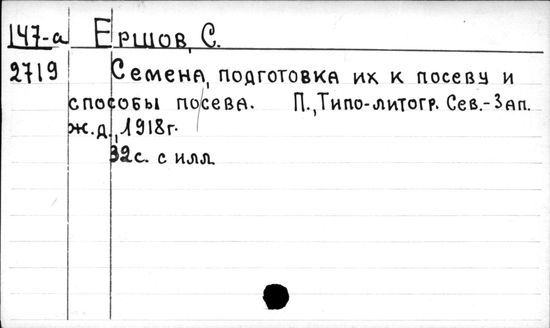 147-а Ершов, С.
2719 Семена, подготовка их к посеву и
способы посева. П., Типо-литогр. Сев.-Зап.
ж.д., 1918г.
32с. с илл.